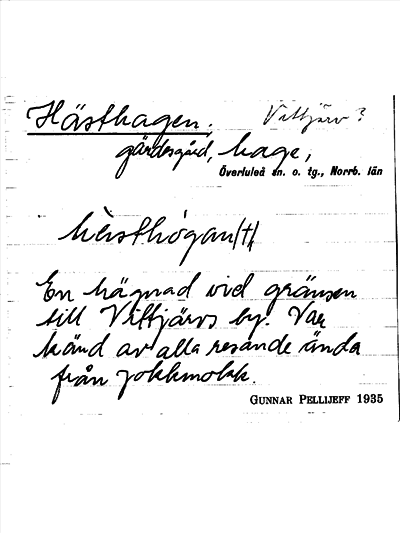 Hästhagen. Vittjärv?
gärdesgård, hage,
Överluleå sn. o. tg., Norrb. län
En hägnad vid gränsen
till Vittjärvs by. Var
känd av alla resande ända
från Jokkmokk.
GUNNAR PELLIJEFF 1935